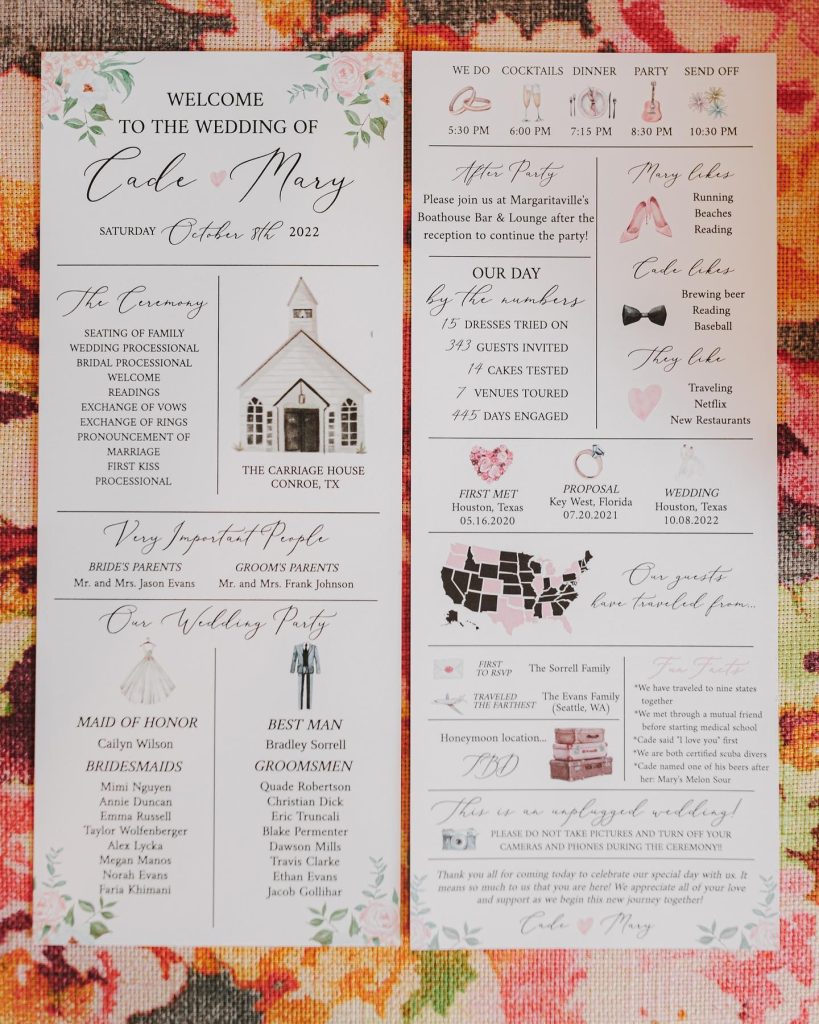 WELCOME
TO THE WEDDING OF
Cade Mary
SATURDAY October 8th 2022
The Ceremony
SEATING OF FAMILY
WEDDING PROCESSIONAL
BRIDAL PROCESSIONAL
WELCOME
READINGS
EXCHANGE OF VOWS
EXCHANGE OF RINGS
PRONOUNCEMENT OF
MARRIAGE
FIRST KISS
PROCESSIONAL
THE CARRIAGE HOUSE
CONROE, TX
Very Important People
BRIDE'S PARENTS
Mr. and Mrs. Jason Evans
GROOM'S PARENTS
Mr. and Mrs. Frank Johnson
Our Wedding Party
MAID OF HONOR
Cailyn Wilson
BRIDESMAIDS
Mimi Nguyen
Annie Duncan
Emma Russell
Taylor Wolfenberger
Alex Lycka
Megan Manos
Norah Evans
Faria Khimani
BEST MAN
Bradley Sorrell
GROOMSMEN
Quade Robertson
Christian Dick
Eric Truncali
Blake Permenter
Dawson Mills
Travis Clarke
Ethan Evans
Jacob Gollihar
WE DO COCKTAILS DINNER PARTY SEND OFF
5:30 PM 6:00 PM 7:15 PM 8:30 PM 10:30 PM
After Party
Please join us at Margaritaville's
Boathouse Bar & Lounge after the
reception to continue the party!
OUR DAY
by the numbers
15 DRESSES TRIED ON
343 GUESTS INVITED
14 CAKES TESTED
7 VENUES TOURED
445 DAYS ENGAGED
Mary likes
Running
Beaches
Reading
Cade likes
Brewing beer
Reading
Baseball
They like
Traveling
Netflix
New Restaurants
FIRST MET
Houston, Texas
05.16.2020
PROPOSAL
Key West, Florida
07.20.2021
WEDDING
Houston, Texas
10.08.2022
Our guests
have traveled from...
FIRST
TO RSVP
The Sorrell Family
TRAVELED
THE FARTHEST
The Evans Family
(Seattle, WA)
Honeymoon location...
TBD
Fun Facts
*We have traveled to nine states
together
*We met through a mutual friend
before starting medical school
*Cade said "I love you" first
*We are both certified scuba divers
*Cade named one of his beers after
her: Mary's Melon Sour
This is an unplugged wedding!
PLEASE DO NOT TAKE PICTURES AND TURN OFF YOUR
CAMERAS AND PHONES DURING THE CEREMONY!!
Thank you all for coming today to celebrate our special day with us. It
means so much to us that you are here! We appreciate all of your love
and support as we begin this new journey together!
Cade Mary